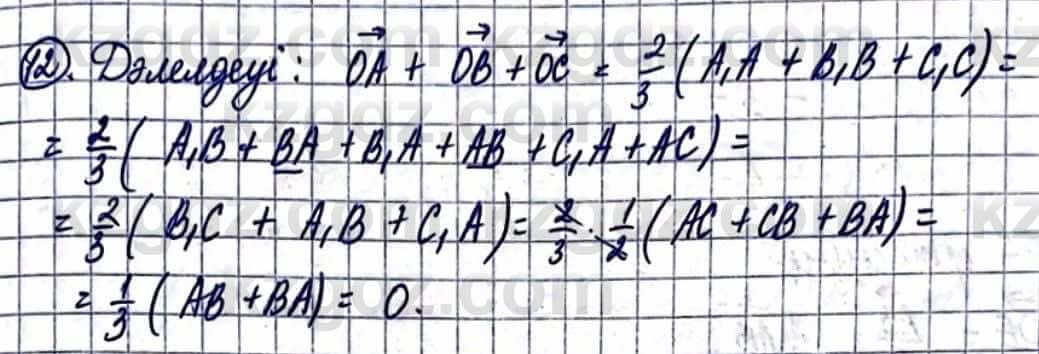 12). Дәлелдеуі: OA + OB + OC = 2/3 (A₁A + B₁B + C₁C) =
= 2/3 ( A₁B + BA + B₁A + AB + C₁A + AC) =
= 2/3 ( B₁C + A₁B + C₁A) = 2/3 · 1/2 ( AC + CB + BA) =
= 1/3 ( AB + BA) = 0.